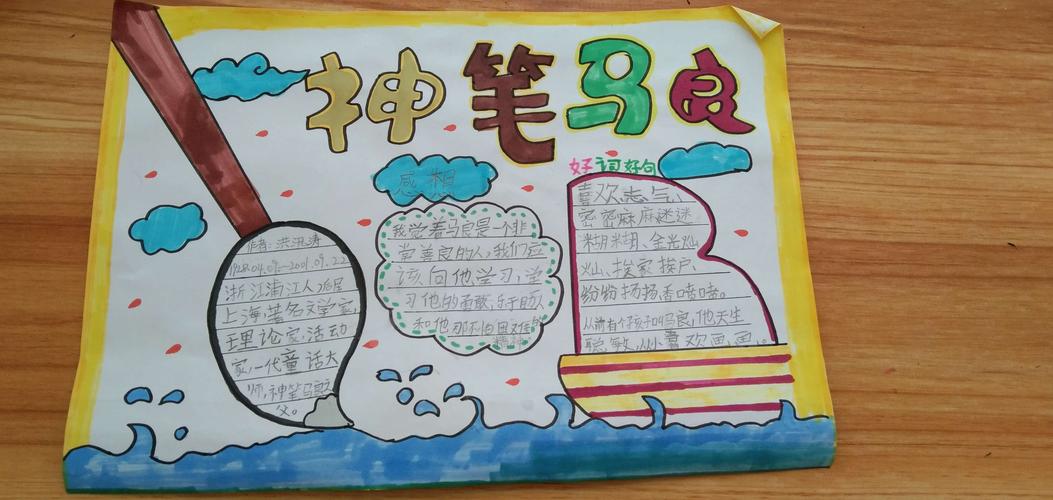 神笔马良
感想
好词好句
作者:洪汛涛
1928.04.09-2001.09.22
浙江浦江人,旅居
上海,著名文学家,
理论家,活动
家,一代童话大
师,神笔马良之
父。
我觉着马良是一个非
常善良的人,我们应
该向他学习,学
习他的勇敢,乐于助人
和他那不怕困难的
精神
喜欢、志气、
密密麻麻、迷迷
糊糊、金光灿
灿、挨家挨户、
纷纷扬扬、香喷喷。
从前有个孩子叫马良,他天生
聪敏,从小喜欢画画。